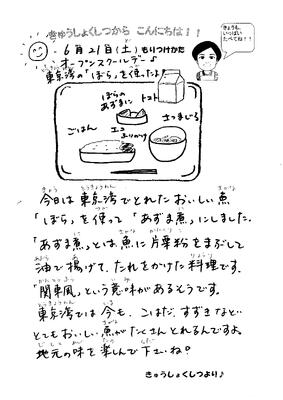 きゅうしょくしつから こんにちは!!
きょうも、
いっぱい
たべてね!!
6月21日(土)もりつけかた
オープンスクールデー♪
東京湾の「ぼら」を使ったよ!
ぼらの
あずまに
トマト
さつまじる
ごはん
エコ
ふりかけ
今日は東京湾でとれたおいしい魚
「ぼら」を使って「あずま煮」にしました。
「あずま煮」とは、魚に片栗粉をまぶして
油で揚げて、たれをかけた料理です。
「関東風」という意味があるそうです。
東京湾では今も、こはだ、すずきなど…
とてもおいしい魚がたくさんとれるんですよ。
地元の味を楽しんで下さいね?
きゅうしょくしつより♪